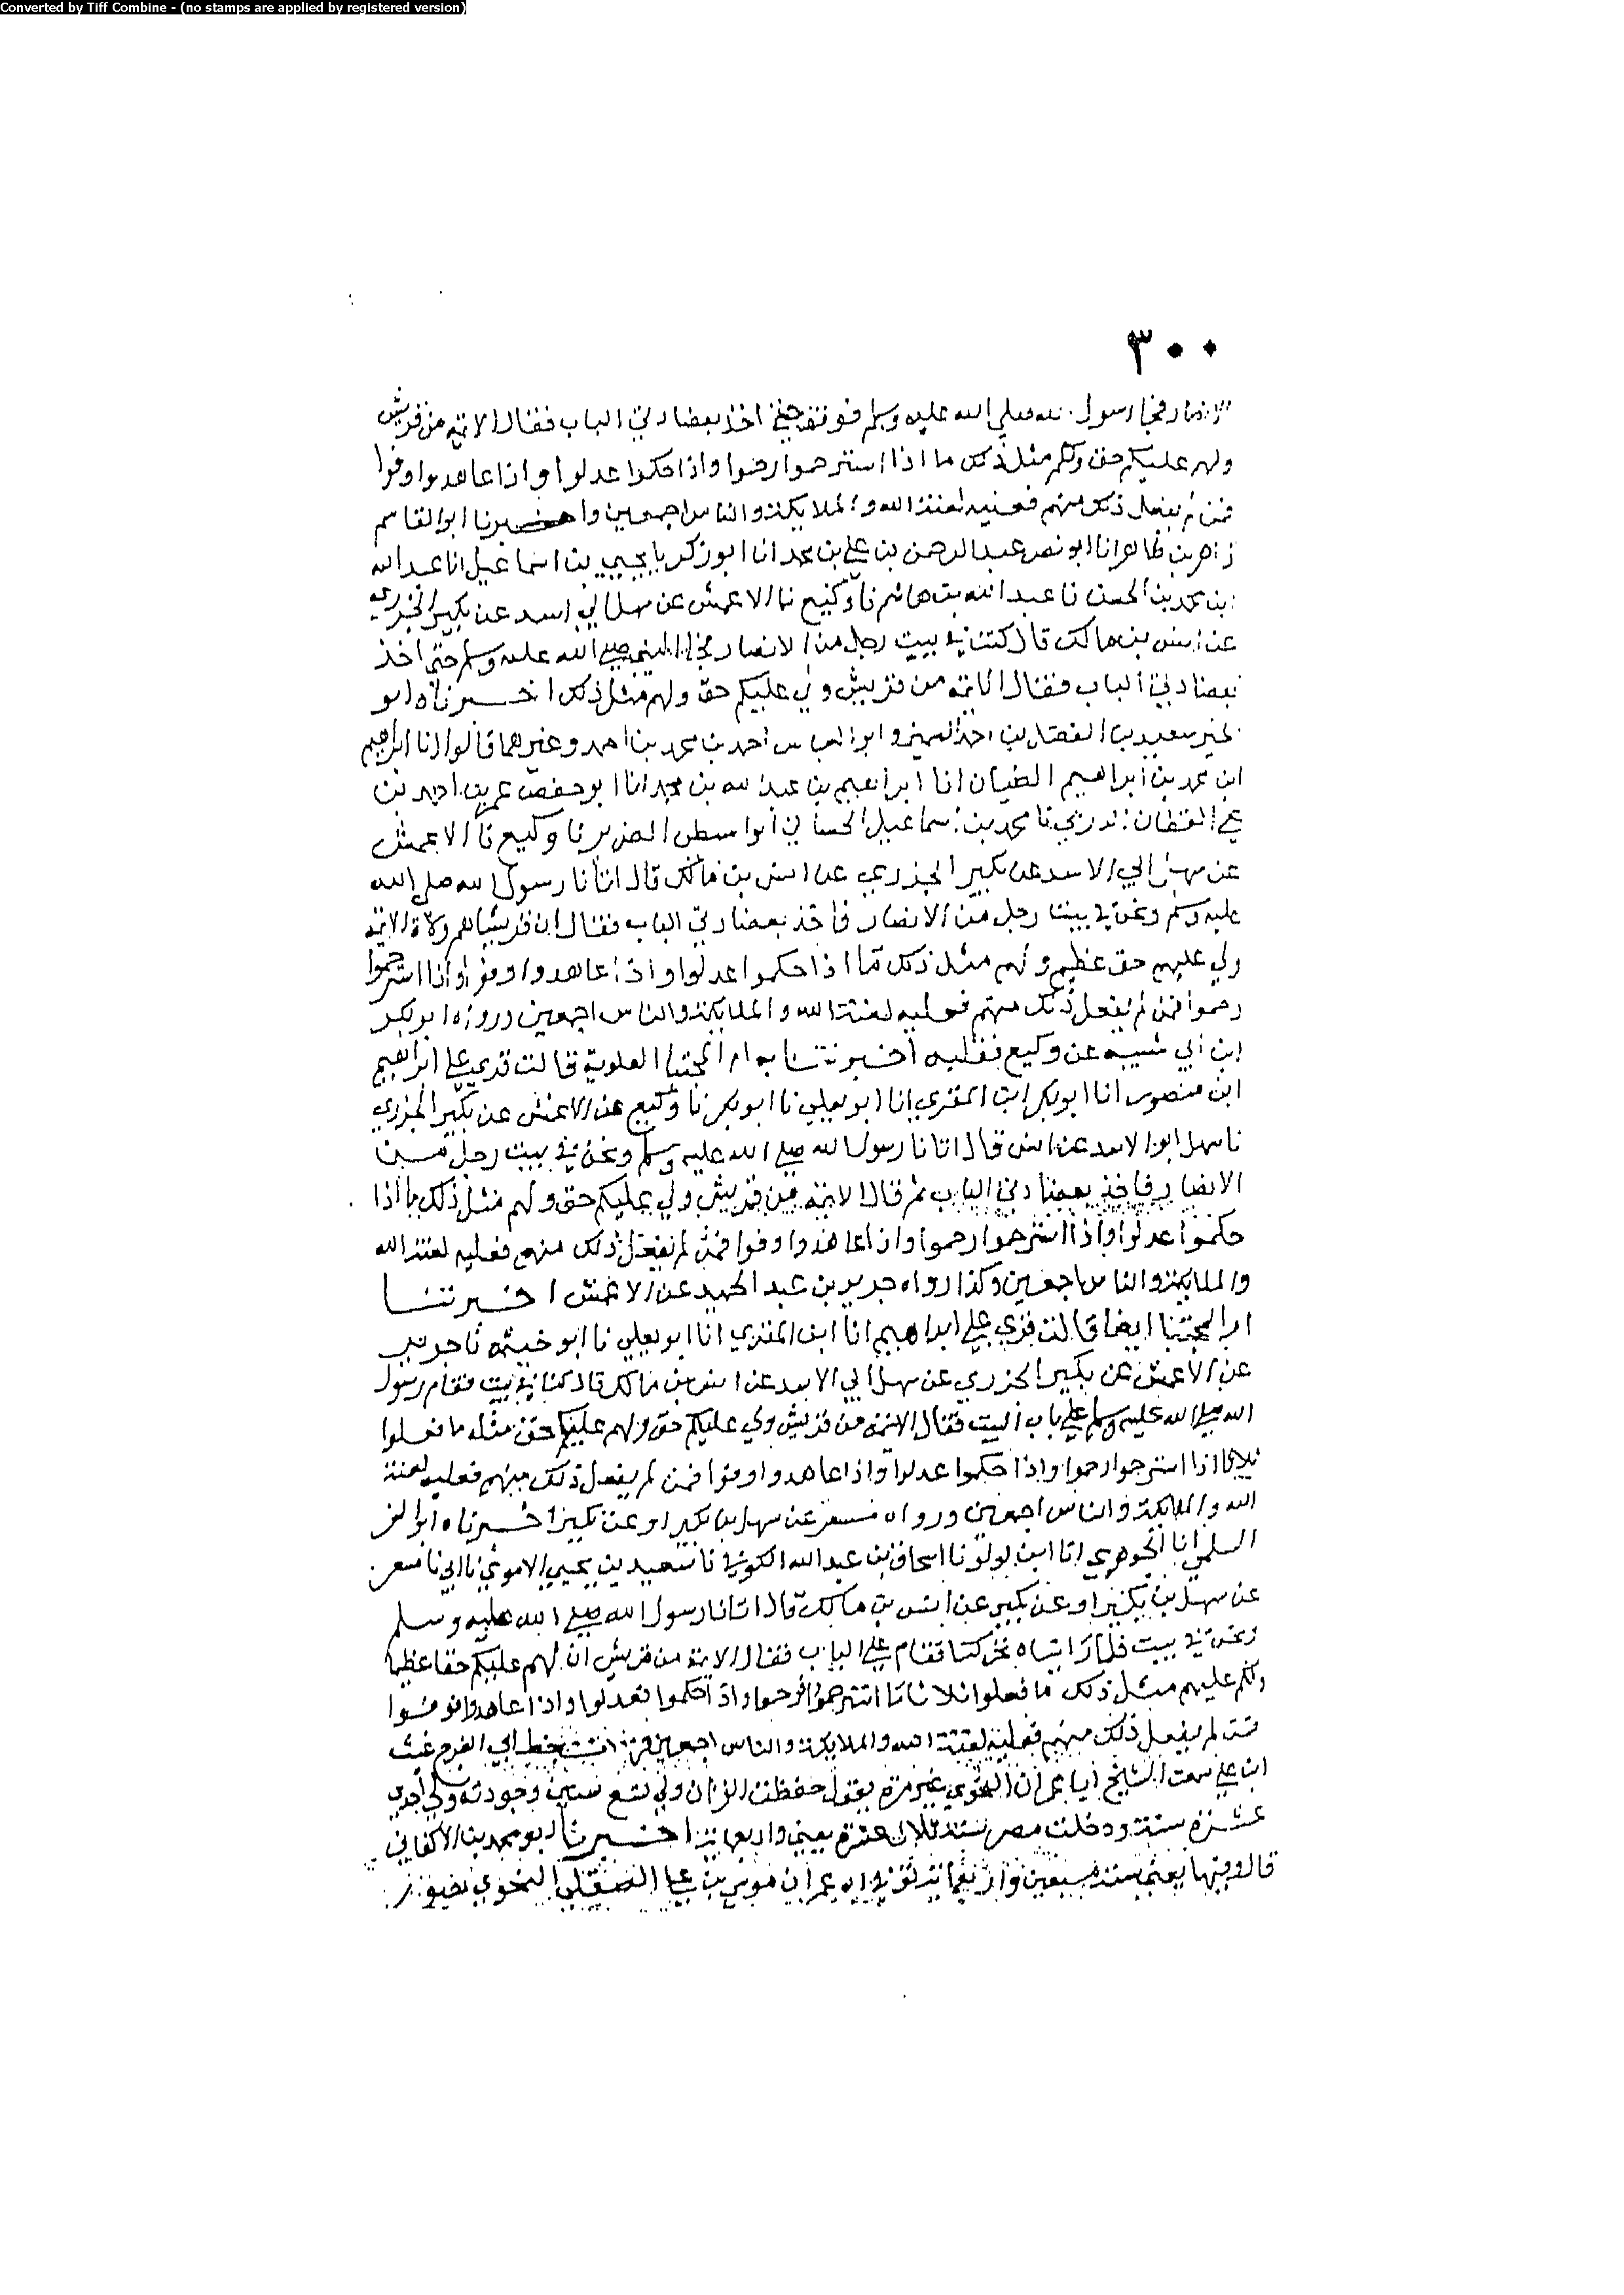 Converted by Tiff Combine - (no stamps are applied by registered version)
٣٠٠
الانصار فجا رسول الله صلي الله عليه وسلم فوقف حتي اخذ بعضادتي الباب فقال الائمه من قريش
ولهم عليكم حق ولكم مثل ذلك ما اذا استرحموا رحموا واذا حكموا عدلوا واذا عاهدوا وفوا
فمن لم يفعل ذلك منهم فعليه لعنة الله والملايكة والناس اجمعين واخبرنا ابو القاسم
زاهر بن طاهر انا ابو نصر عبد الرحمن بن علي بن محمد انا ابو زكريا يحيي بن اسماعيل انا عبد الله
ابن محمد بن الحسن نا عبد الله بن هاشم نا وكيع نا الاعمش عن سهل ابي اسد عن بكير الجزري
عن انس بن مالك قال كنت في بيت رجل من الانصار فجا النبي صلي الله عليه وسلم حتي اخذ
بعضادتي الباب فقال الائمه من قريش ولي عليكم حق ولهم مثل ذلك اخبرناه ابو
الخير سعيد بن الفضل بن وابو العباس احمد بن محمد بن احمد وغيرهما قالوا انا ابراهيم
ابن محمد بن ابراهيم الطيان انا ابراهيم بن عبد الله بن محمد انا ابو حفص عمر بن احمد بن
علي القطان الدربي نا محمد بن اسماعيل الحساني الواسطي الضرير نا وكيع نا الاعمش
عن سهل ابي الاسد عن بكير الجزري عن انس بن مالك قال اتانا رسول الله صلي الله
عليه وسلم ونحن في بيت رجل من الانصار فاخذ بعضادتي الباب فقال ان قريشا هم ولاة الائمه
ولي عليهم حق عظيم ولهم مثل ذلك ما اذا حكموا عدلوا واذا عاهدوا وفوا واذا استرحموا
رحموا فمن لم يفعل ذلك منهم فعليه لعنة الله والملايكة والناس اجمعين ورواه ابو بكر
ابن ابي شيبه عن وكيع فقلبه اخبرتنا به ام المجتبا العلوية قالت قري علي ابراهيم
ابن منصور انا ابو بكر ابن المقري انا ابو يعلي نا ابو بكر نا وكيع عن الاعمش عن بكير الجزري
نا سهل ابو الاسد عن انس قال اتانا رسول الله صلي الله عليه وسلم ونحن في بيت رجل من
الانصار فاخذ بعضادتي الباب ثم قال الائمه من قريش ولي عليكم حق ولهم مثل ذلك ما اذا
حكموا عدلوا واذا استرحموا رحموا واذا عاهدوا وفوا فمن لم يفعل ذلك منهم فعليه لعنة الله
والملايكة والناس اجمعين وكذا رواه جرير بن عبد الحميد عن الاعمش اخبرتنا
ام المجتبا ايضا قالت قري علي ابراهيم انا ابن المقري انا ابو يعلي نا ابو خيثمه نا جرير
عن الاعمش عن بكير الجزري عن سهل ابي الاسد عن انس بن مالك قال كنا في بيت فقام رسول
الله صلي الله عليه وسلم علي باب البيت فقال الائمه من قريش ولي عليكم حق ولهم عليكم حق مثله ما فعلوا
ثلاثا اذا استرحموا رحموا واذا حكموا عدلوا واذا عاهدوا وفوا فمن لم يفعل ذلك منهم فعليه لعنة
الله والملايكة والناس اجمعين ورواه مسعر عن سهل بن بكير او عن بكير اخبرناه ابو العز
السلمي انا الجوهري انا ابن لولو نا اسحاق بن عبد الله الكوفي نا سعيد بن يحيي الاموي نا ابي نا مسعر
عن سهل بن بكير او عن بكير عن انس بن مالك قال اتانا رسول الله صلي الله عليه وسلم
ونحن في بيت فلما رايناه تحركنا فقام علي الباب فقال الائمة من قريش ان لهم عليكم حقا عظيما
ولكم عليهم مثل ذلك ما فعلوا ثلاثا ما استرحموا فرحموا واذا حكموا فعدلوا واذا عاهدوا فوفوا
فمن لم يفعل ذلك منهم فعليه لعنة الله والملايكة والناس اجمعين قرات بخط ابي الفرج غيث
ابن علي سمعت الشيخ ابا عمران النحوي غير مرة يقول حفظت القران ولي تسع سنين وجودته ولي احدي
عشرة سنة ودخلت مصر سنة ثلاث عشرة يعني واربعماية اخبرنا ابو محمد بن الاكفاني
قال وفيها يعني سنة سبعين واربعماية توفي ابو عمران موسي بن علي الصقلي النحوي بصور